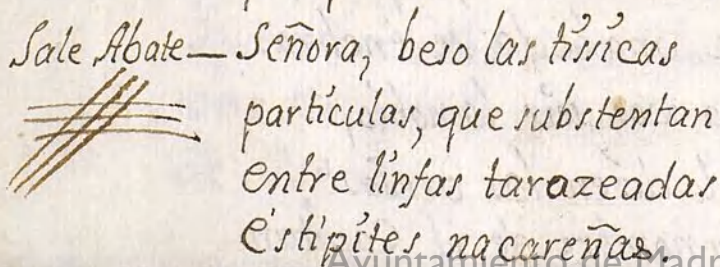 Sale Abate— Señora, beso las tísicas
partículas, que substentan
entre linfas tarazeadas
éstipites nacareñas.
Ayuntamiento de Madr